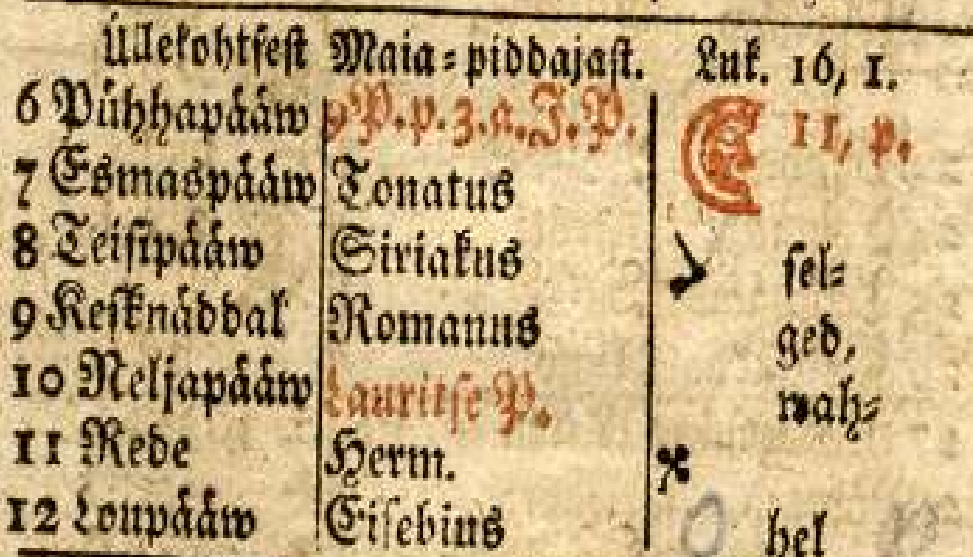 Üllekohtsest Maia-piddajast. Luk. 16, 1.
6 Pühhapääw 9 P. p. 3. a. J. P. 11, p.
7 Esmaspääw Tonatus
8 Teisipääw Siriakus sel-
9 Kesknäddal Romanus ged,
10 Neljapääw Lauritse P. wah-
11 Rede Herm.
12 Loupääw Eisebius hel